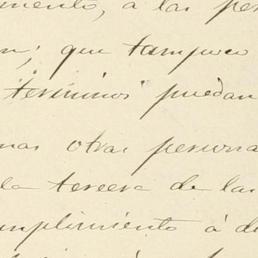 mento, á las per
n; que tampoco
terminos puedan
nas otras persona
la tercera de las
mplimiento á d